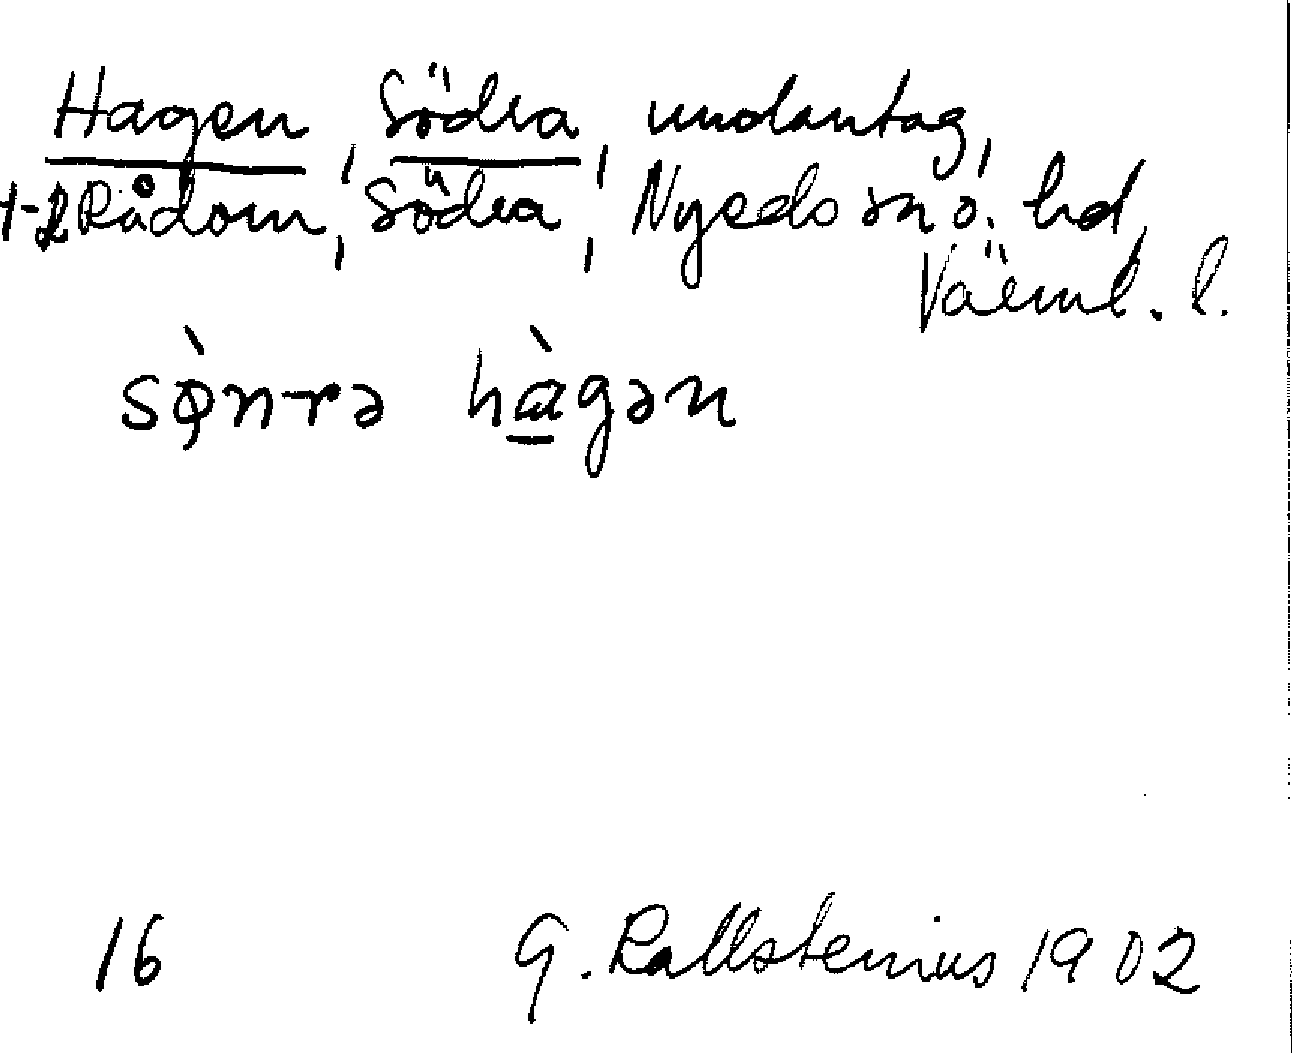 Hagen, Södra, undantag,
1-2 Rådom, Södra, Nyeds sn o. hd,
Värml. l.
sø̀n-rə hàgən
16 G. Kallstenius 1902